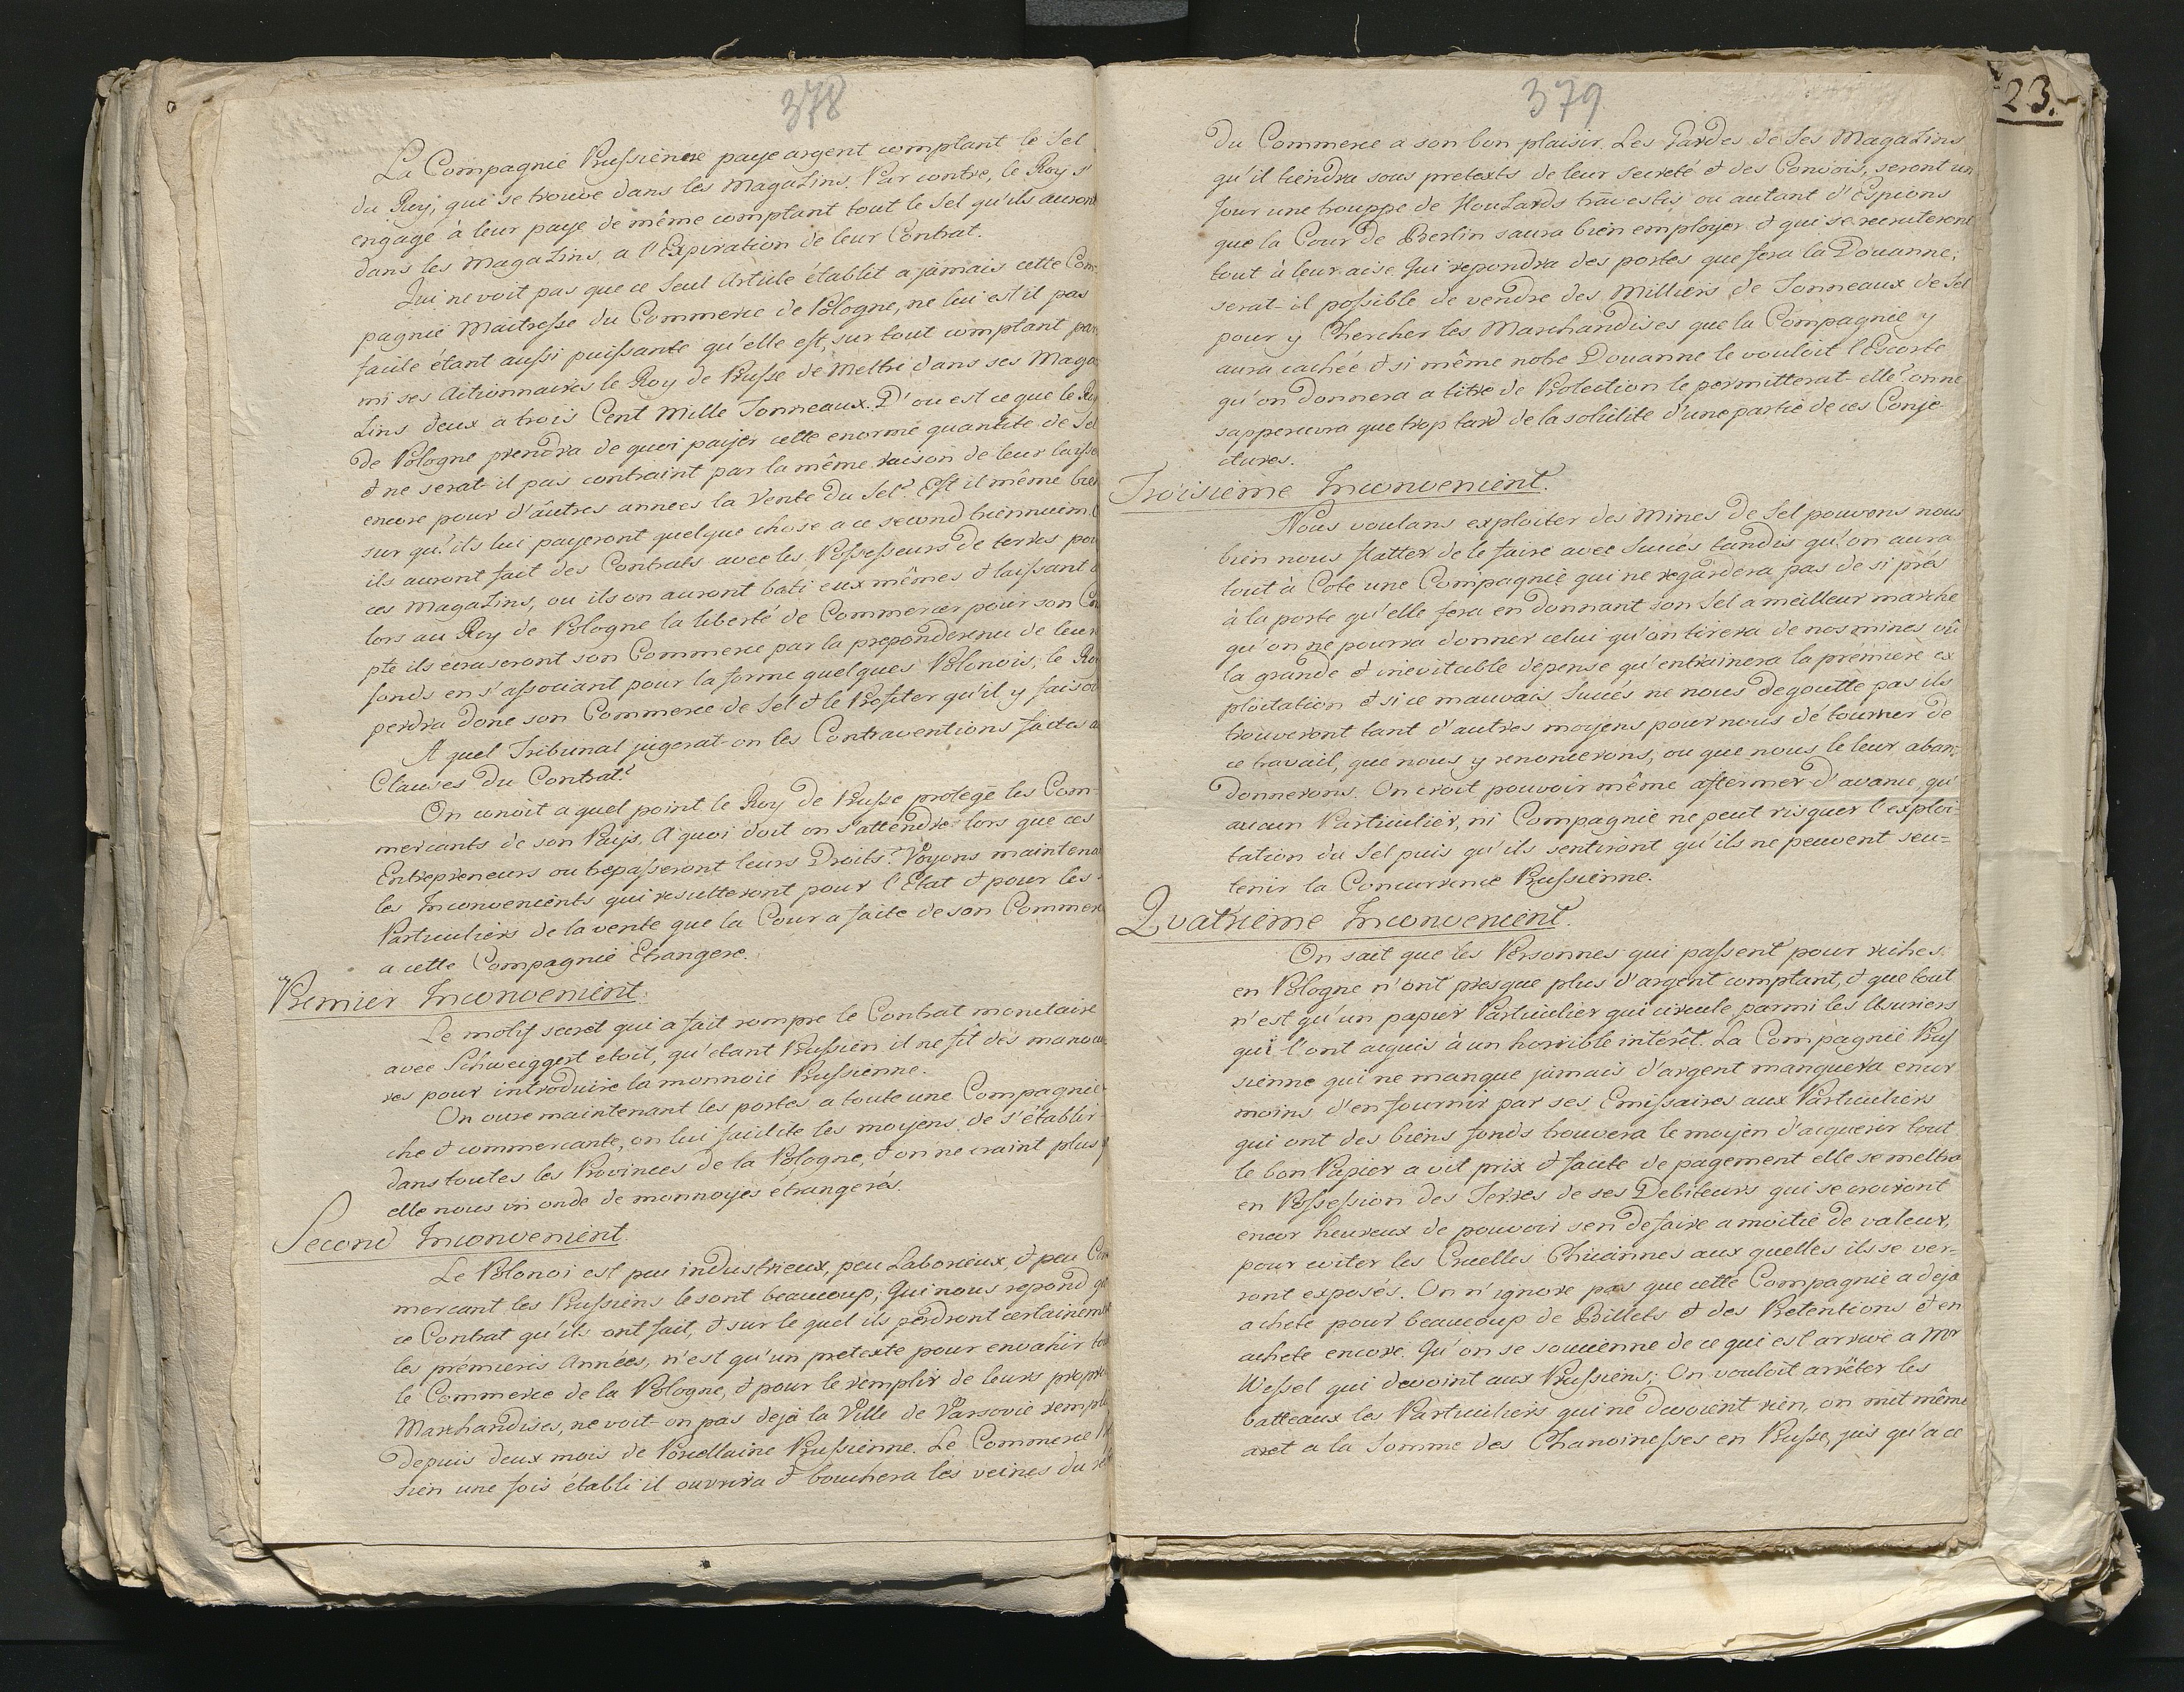 378
La Compagnie Prussienne paye argent comptant le Sel
du Roy, qui se trouve dans les MagaZins. Par contre, le Roy s'
engage à leur paye de même comptant tout le Sel qu'ils auront
dans les MagaZins a l'Expiration de leur Contrat.
Qui ne voit pas que ce Seul Article établit a jamais cette Com-
pagnie Maitresse du Commerce de Pologne, ne lui est il pas
facile étant aussi puissante qu'elle est, sur tout comptant par
mi ses Actionnaires le Roy de Prusse de Mettre dans ses Maga
Zins deux a trois Cent Mille Tonneaux. D'ou est ce que le Roy
de Pologne prendra de quoi payer cette enorme quantité de Sel
& ne serat-il pas contraint par la même raison de leur laisser
encore pour d'autres années la Vente du Sel? Est il même bien
sur qu'ils lui payeront quelque chose a ce second triennium.
ils auront fait des Contrats avec les Possesseurs de terres pour
ces MagaZins, ou ils on auront bati eux mêmes & laissant
lors au Roy de Pologne la liberté de Commercer pour son Com
pte ils ecraseront son Commerce par la preponderence de leurs
fonds en s'associant pour la forme quelques Polonois, le Roy
perdra donc son Commerce de Sel & le Profiter qu'il y faisoit
A quel Tribunal jugerat-on les Contraventions faites a
Clauses du Contrat?
On conoit a quel point le Roy de Prusse protege les Com-
mercants de son Pays. A quoi doit on s'attendre lors que ces
Entrepreneurs outrepasseront leurs Droits? Voyons maintenant
les Inconvenients qui resulteront pour l'Etat & pour les
Particuliers de la vente que la Cour a faite de son Commerce
a cette Compagnie Etrangere.
Premier Inconvenient.
Le motif secret qui a fait rompre le Contrat monetaire
avec Schweiggert etoit, qu'etant Prussien il ne fît des manoeu
res pour introduire la monnoie Prussienne.
On ouvre maintenant les portes a toute une Compagnie
che & commercante, on lui facilite les moyens de s'établir
dans toutes les Provinces de la Pologne, & on ne craint plus
elle nous in onde de monnoyes étrangerés.
Second Inconvenient.
Le Polonoi est peu industrieux, peu Laborieux, & peu Com
mercant les Prussiens le sont beaucoup; Qui nous repond que
ce Contrat qu'ils ont fait, & sur le quel ils perdront certainement
les prémieris Années, n'est qu'un pretexte pour envahir tout
le Commerce de la Pologne, & pour le remplir de leurs propres
Marchandises, ne voit-on pas deja la Ville de Varsovie remplie
depuis deux mois de Porcellaine Prussienne. Le Commerce Prus
sien une fois établi il ouvrira & bouchera les veines du

379
23.
du Commerce a son bon plaisir. Les Gardes de Ses MagaZins
qu'il tiendra sous pretexts de leur Secreté & des Convois, seront un
Jour une trouppe de HouZards travestis ou autant d'Espions
que la Cour de Berlin saura bien employer & qui se recruteront
tout à leur aise. Qui repondra des portes que fera la Douanne;
serat-il possible de vendre des Milliers de Tonneaux de Sel
pour y Chercher les Marchandises que la Compagnie y
aura cachée & si même notre Douanne le vouloit l'Escorte
qu'on donnera a titre de Protection le permitterat-elle? on ne
s'appercevra que trop tard de la solidité d'une partie de ces Conje
ctures.
Troisieme Inconvenient.
Nous voulans exploiter des Mines de Sel pouvons nous
bien nous flatter de le faire avec Succés tandis qu'on aura
tout à Cote une Compagnie qui ne regardera pas de si prés
à la perte qu'elle fera en donnant son Sel a meilleur marche
qu'on ne pourra donner celui qu'on tirera de nos mines vû
la grande & inevitable depense qu'entrainera la prémiere ex
ploitation & si ce mauvais Succés ne nous degoutte pas ils
trouveront tant d'autres moyens pour nous détourner de
ce travail, que nous y renoncerons, ou que nous le leur aban-
donnerons. On croit pouvoir même affermer d'avance, qu'
aucun Particulier, ni Compagnie ne peut risquer l'exploi-
tation du Sel puis qu'ils sentiront qu'ils ne peuvent sou=
tenir la Concurrence Prussienne.
Quatrieme Inconvenient.
On sait que les Personnes qui passent pour riches
en Pologne n'ont presque plus d'argent comptant, & que tout
n'est qu'un papier Particulier qui circule parmi les Usuriers
qui l'ont acquis à un horrible interêt. La Compagnie Prus
sienne qui ne manque jamais d'argent manquera encor
moins d'en fournir par ses Emissaires aux Particuliers
qui ont des biens fonds trouvera le moyen d'acquerir tout
le bon Papier a vil prix & faute de payement elle se mettra
en Possession des Terres de ses Debiteurs qui se croiront
encor heureux de pouvoir s'en defaire a moitié de valeur,
pour eviter les Cruelles Chicannes aux quelles ils se ver=
ront exposés. On n'ignore pas que cette Compagnie a deja
acheté pour beaucoup de Billets & des Pretentions & en
achete encore. Qu'on se souvienne de ce qui est arrivé a Mr
Wessel qui devoint aux Prussiens; On vouloit arrêter les
batteaux les Particuliers qui ne devoient rien, on mit même
aret a la Somme des Chanoinesses en Prusse, jus qu'a ce